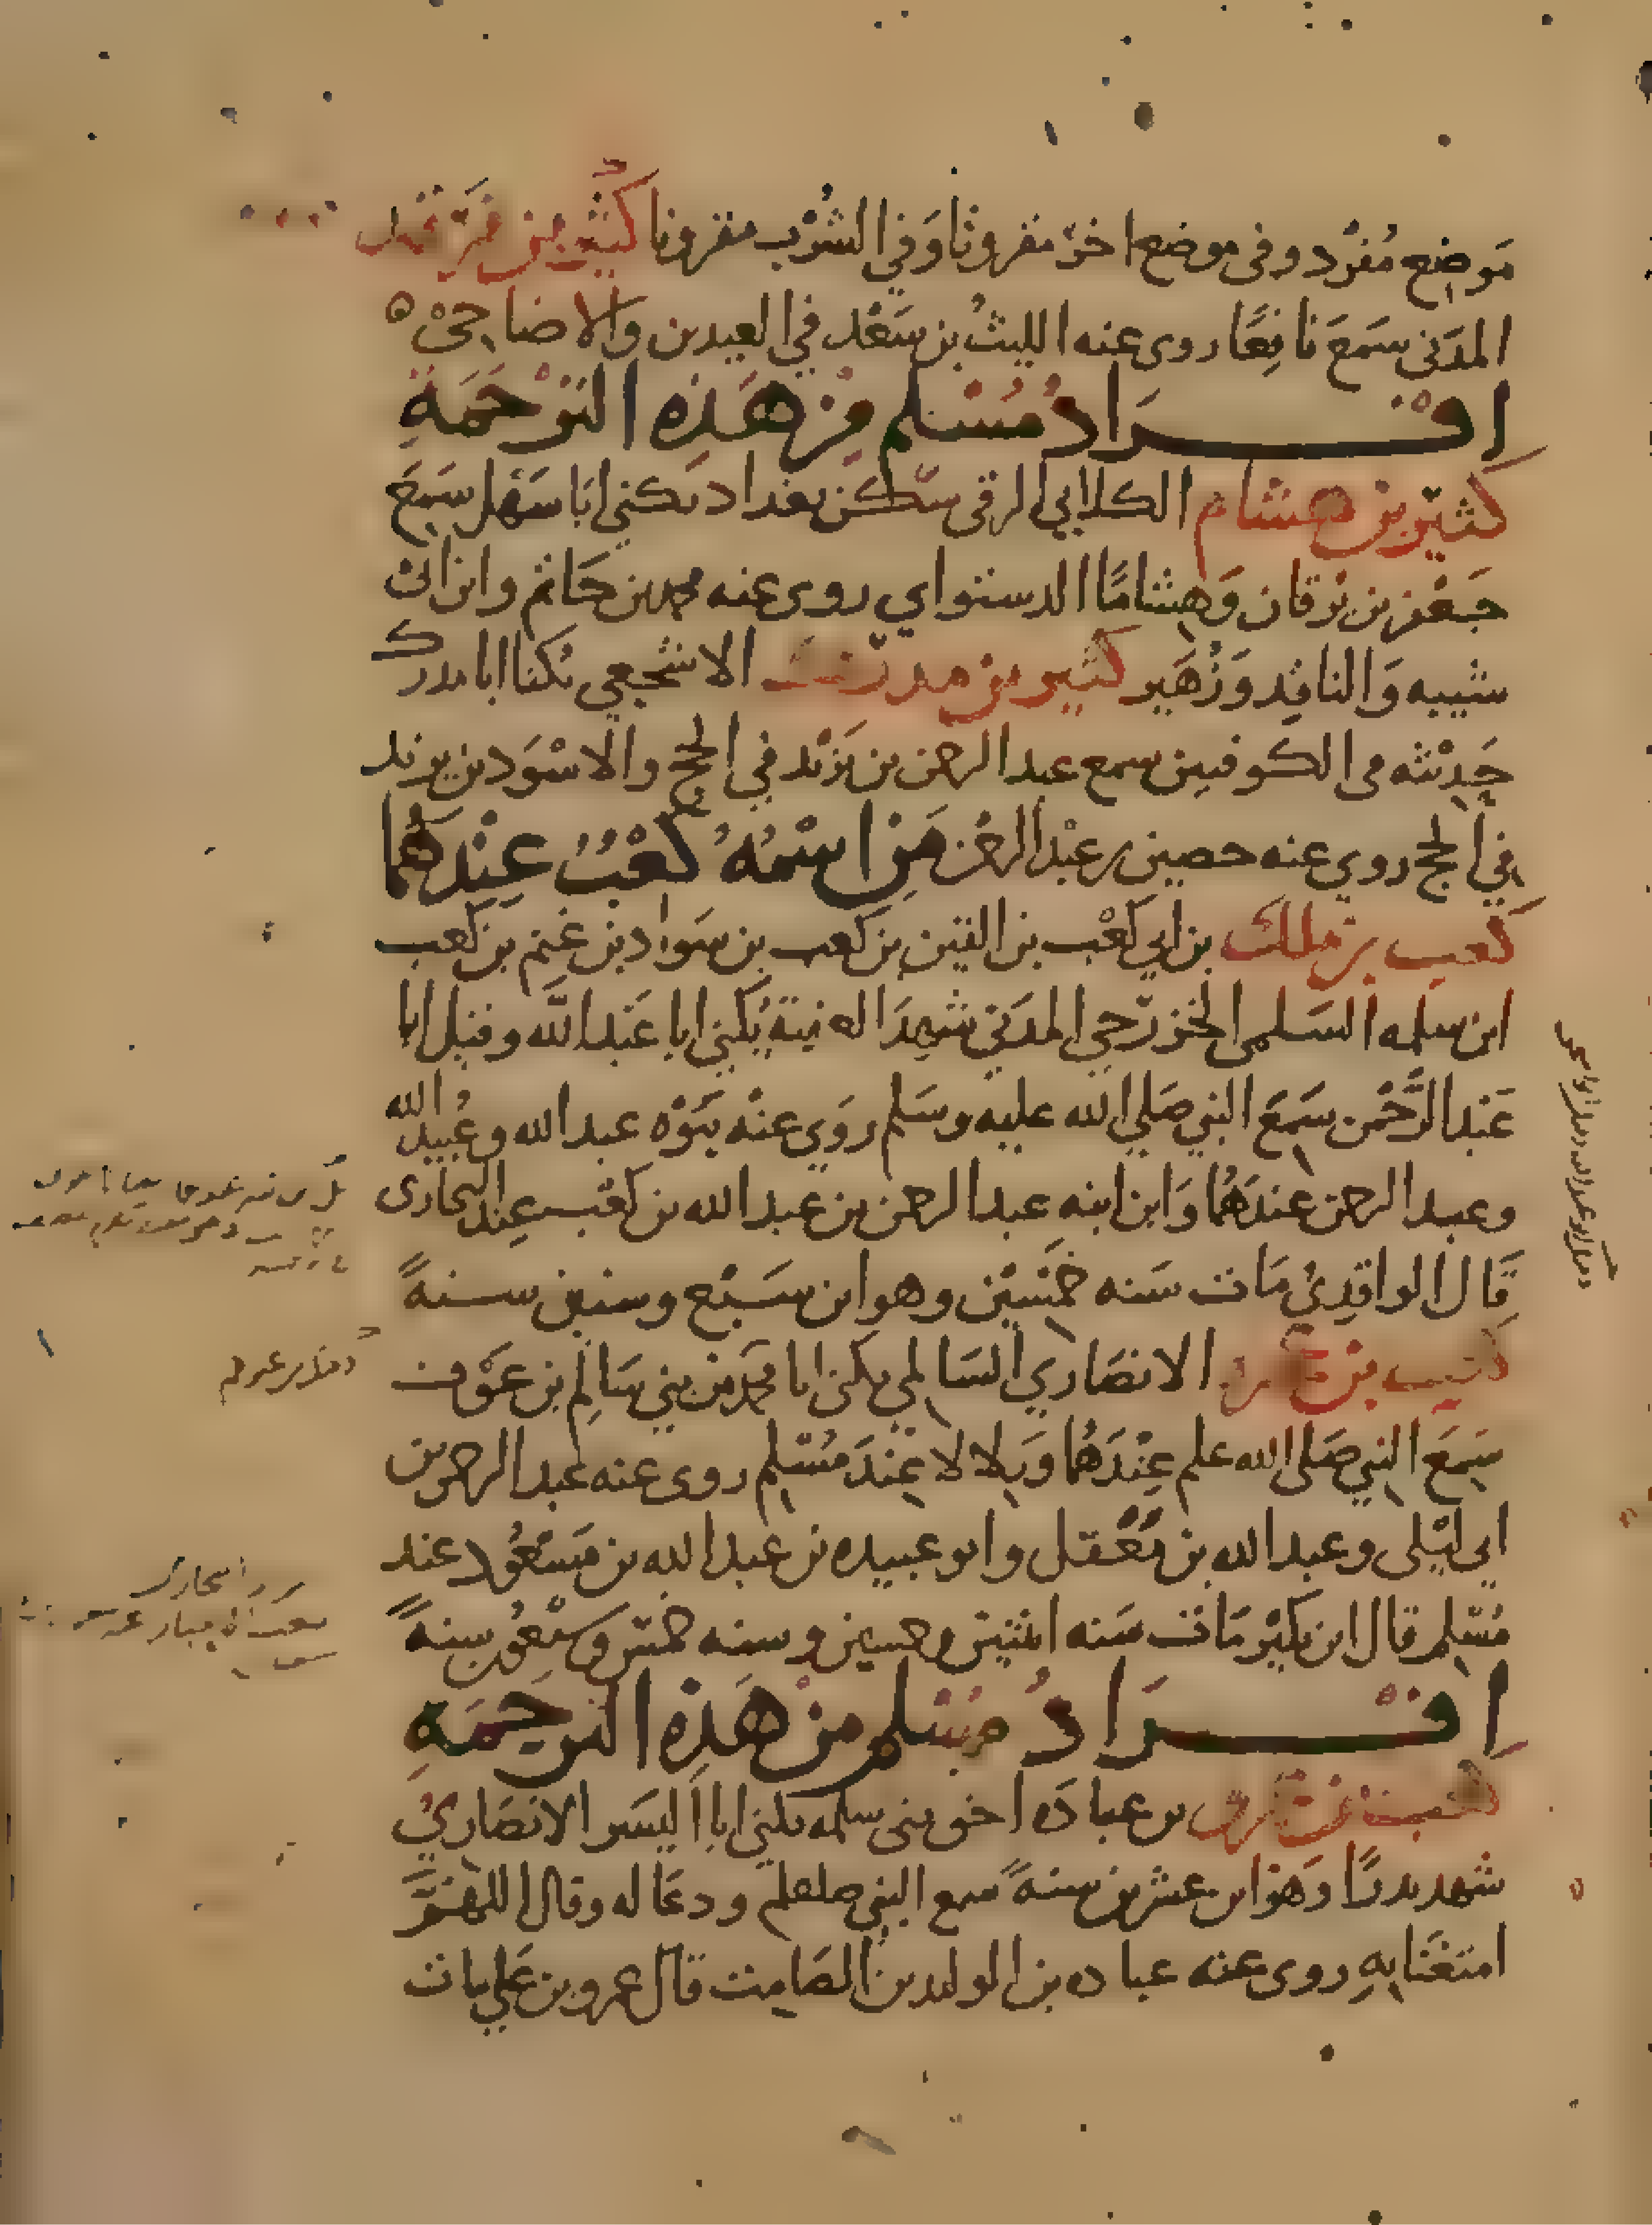 موضع مفرد وفى موضع اخر مقرونا وفي الشرب مقرونا كثير بن فرقد
المدني سمع نافعا روى عنه الليث بن سعد في العيدين والاضاحي
افراد مسلم من هذه الترجمة
كثير بن هشام الكلابي الرقى سكن بغداد يكنى ابا سهل سمع
جعفر بن برقان وهشاما الدستواي روى عنه محمد بن حاتم وابن ابي
شيبه والناقد وزهير كثير بن مدرك الاشجعي يكنا ابا مدرك
حديثه في الكوفيين سمع عبد الرحمن بن يزيد في الحج والاسود بن يزيد
في الحج روي عنه حصين بن عبد الرحمن من اسمه كعب عندهما
كعب بن ملك بن ابي كعب بن القين بن كعب بن سواد بن غنم بن كعب
ابن سلمه السلمى الخزرجي المدني شهد العقبة يكنى ابا عبد الله وقيل ابا
عبد الرحمن سمع النبي صلي الله عليه وسلم روي عنه بنوه عبد الله وعبيد الله
وعبد الرحمن عندهما وابن ابنه عبد الرحمن بن عبد الله بن كعب عند البخارى
قال الواقدي مات سنه خمسين وهو ابن سبع وسبعين سنة
كعب بن عجرة الانصاري السالمي يكنى ابا محمد من بني سالم بن عوف
سمع النبي صلى الله علم عندهما وبلالا عند مسلم روى عنه عبد الرحمن بن
ابي ليلى وعبد الله بن معقل وابو عبيده بن عبد الله بن مسعود عند
مسلم قال ابن بكير مات سنه اثنين وخمسين وسنه خمس وسبعون سنة
افراد مسلم من هذه الترجمة
كعب بن عمرو بن عباده اخو بنى سلمه يكنى ابا اليسر الانصاري
شهد بدرا وهو ابن عشرين سنة سمع النبي صلعلم ودعا له وقال اللهم
امتعنا به روى عنه عباده بن الوليد بن الصامت قال عمرو بن علي مات